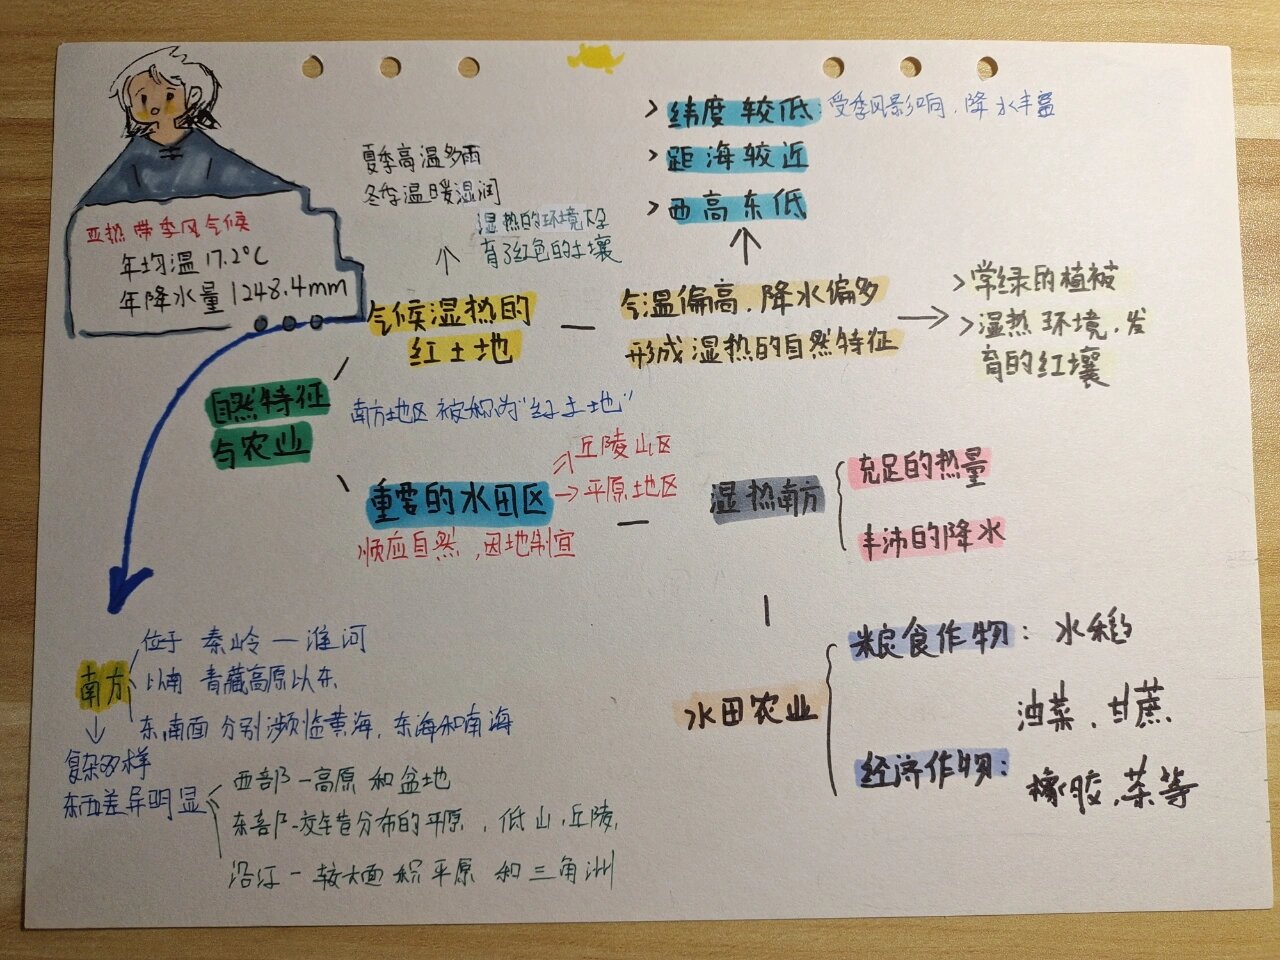 亚热带季风气候
年均温17.2°C
年降水量1248.4mm
夏季高温多雨
冬季温暖湿润
湿热的环境下孕
育了红色的土壤
>纬度较低:受季风影响,降水丰富
>距海较近
>西高东低
气候湿热的
红土地
气温偏高,降水偏多
形成湿热的自然特征
>常绿的植被
>湿热环境,发
育的红壤
自然特征
与农业
南方地区被称为"红土地"
重要的水田区
丘陵山区
平原地区
顺应自然,因地制宜
湿热南方
充足的热量
丰沛的降水
水田农业
粮食作物:水稻
油菜、甘蔗
经济作物:
橡胶,茶等
南方
位于 秦岭—淮河
以南 青藏高原以东
东,南面 分别濒临黄海,东海和南海
复杂多样
东西差异明显
西部-高原和盆地
东部-交错分布的平原,低山,丘陵,
沿江-较大面积平原和三角洲